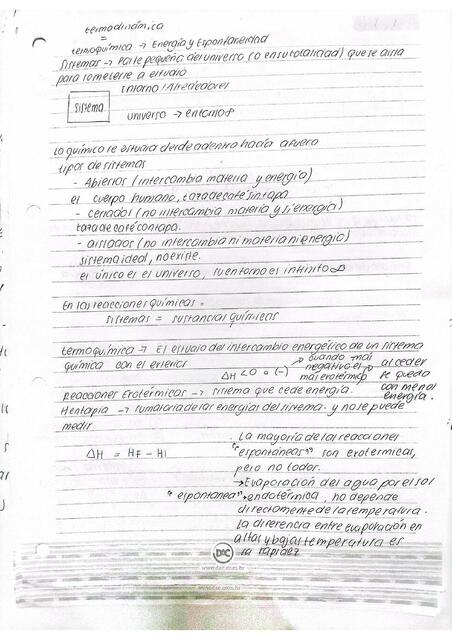 termodinámica
=
termoquímica → Energía y Espontaneidad
Sistemas → Parte pequeña del universo (o en su totalidad) que se aisla
para someterse a estudio
Entorno/Alrededores
Sistema
universo → entorno ∞
Lo químico se estudia desde adentro hacía afuera
tipos de sistemas
- Abiertos (intercambia materia y energía)
ej cuerpo humano, taza de café sin tapa
- cerrados (no intercambia materia y si energía)
taza de café con tapa.
- aislados (no intercambia ni materia ni energío)
sistema ideal, no existe.
ej único es el universo, su entorno es infinito ∞
En las reacciones químicas =
sistemas = sustancias químicas
termoquímica → El estudio del intercambio energético de un sistema
química con el exterior
ΔH < 0 = (-)
cuando más
negativo es
más exotérmico
al ceder
se queda
con menol
energía.
Reacciones Exotérmicas → sistema que cede energía.
Hentapia → sumatoria de las energías del sistema. y no se puede
medir
ΔH = HF - Hi
. La mayoría de las reacciones
"espontáneas" son exotermicas,
pero no todas.
→ Evaporación del agua por el sol
"espontanea" → endotérmica, no depende
directamente de la temperatura.
La diferencia entre evaporación en
altas y bajas temperatura es
la rapidez
DAC
www.dac.com.br
www.dac.com.br